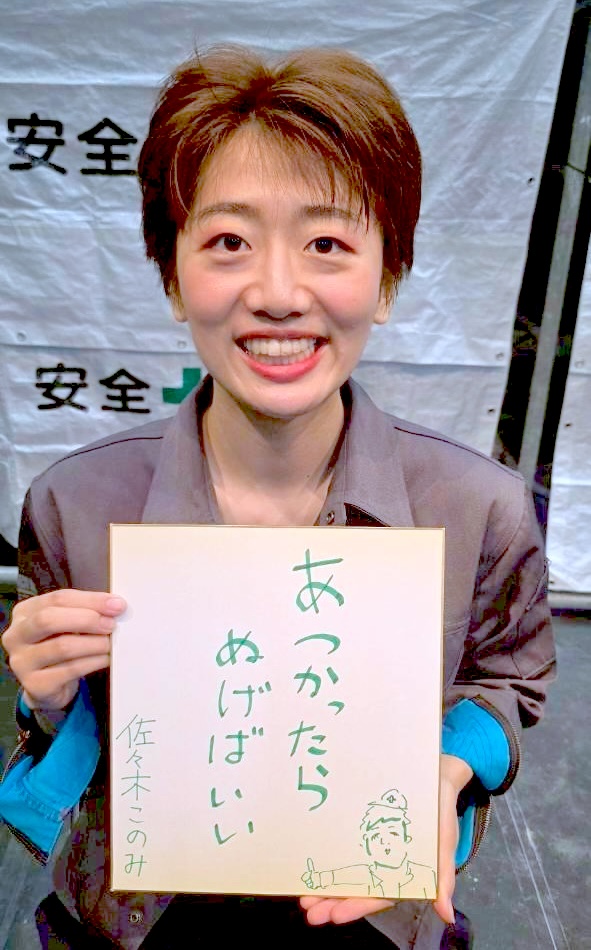 安全
安全
あつかったら
ぬげばいい
佐々木このみ